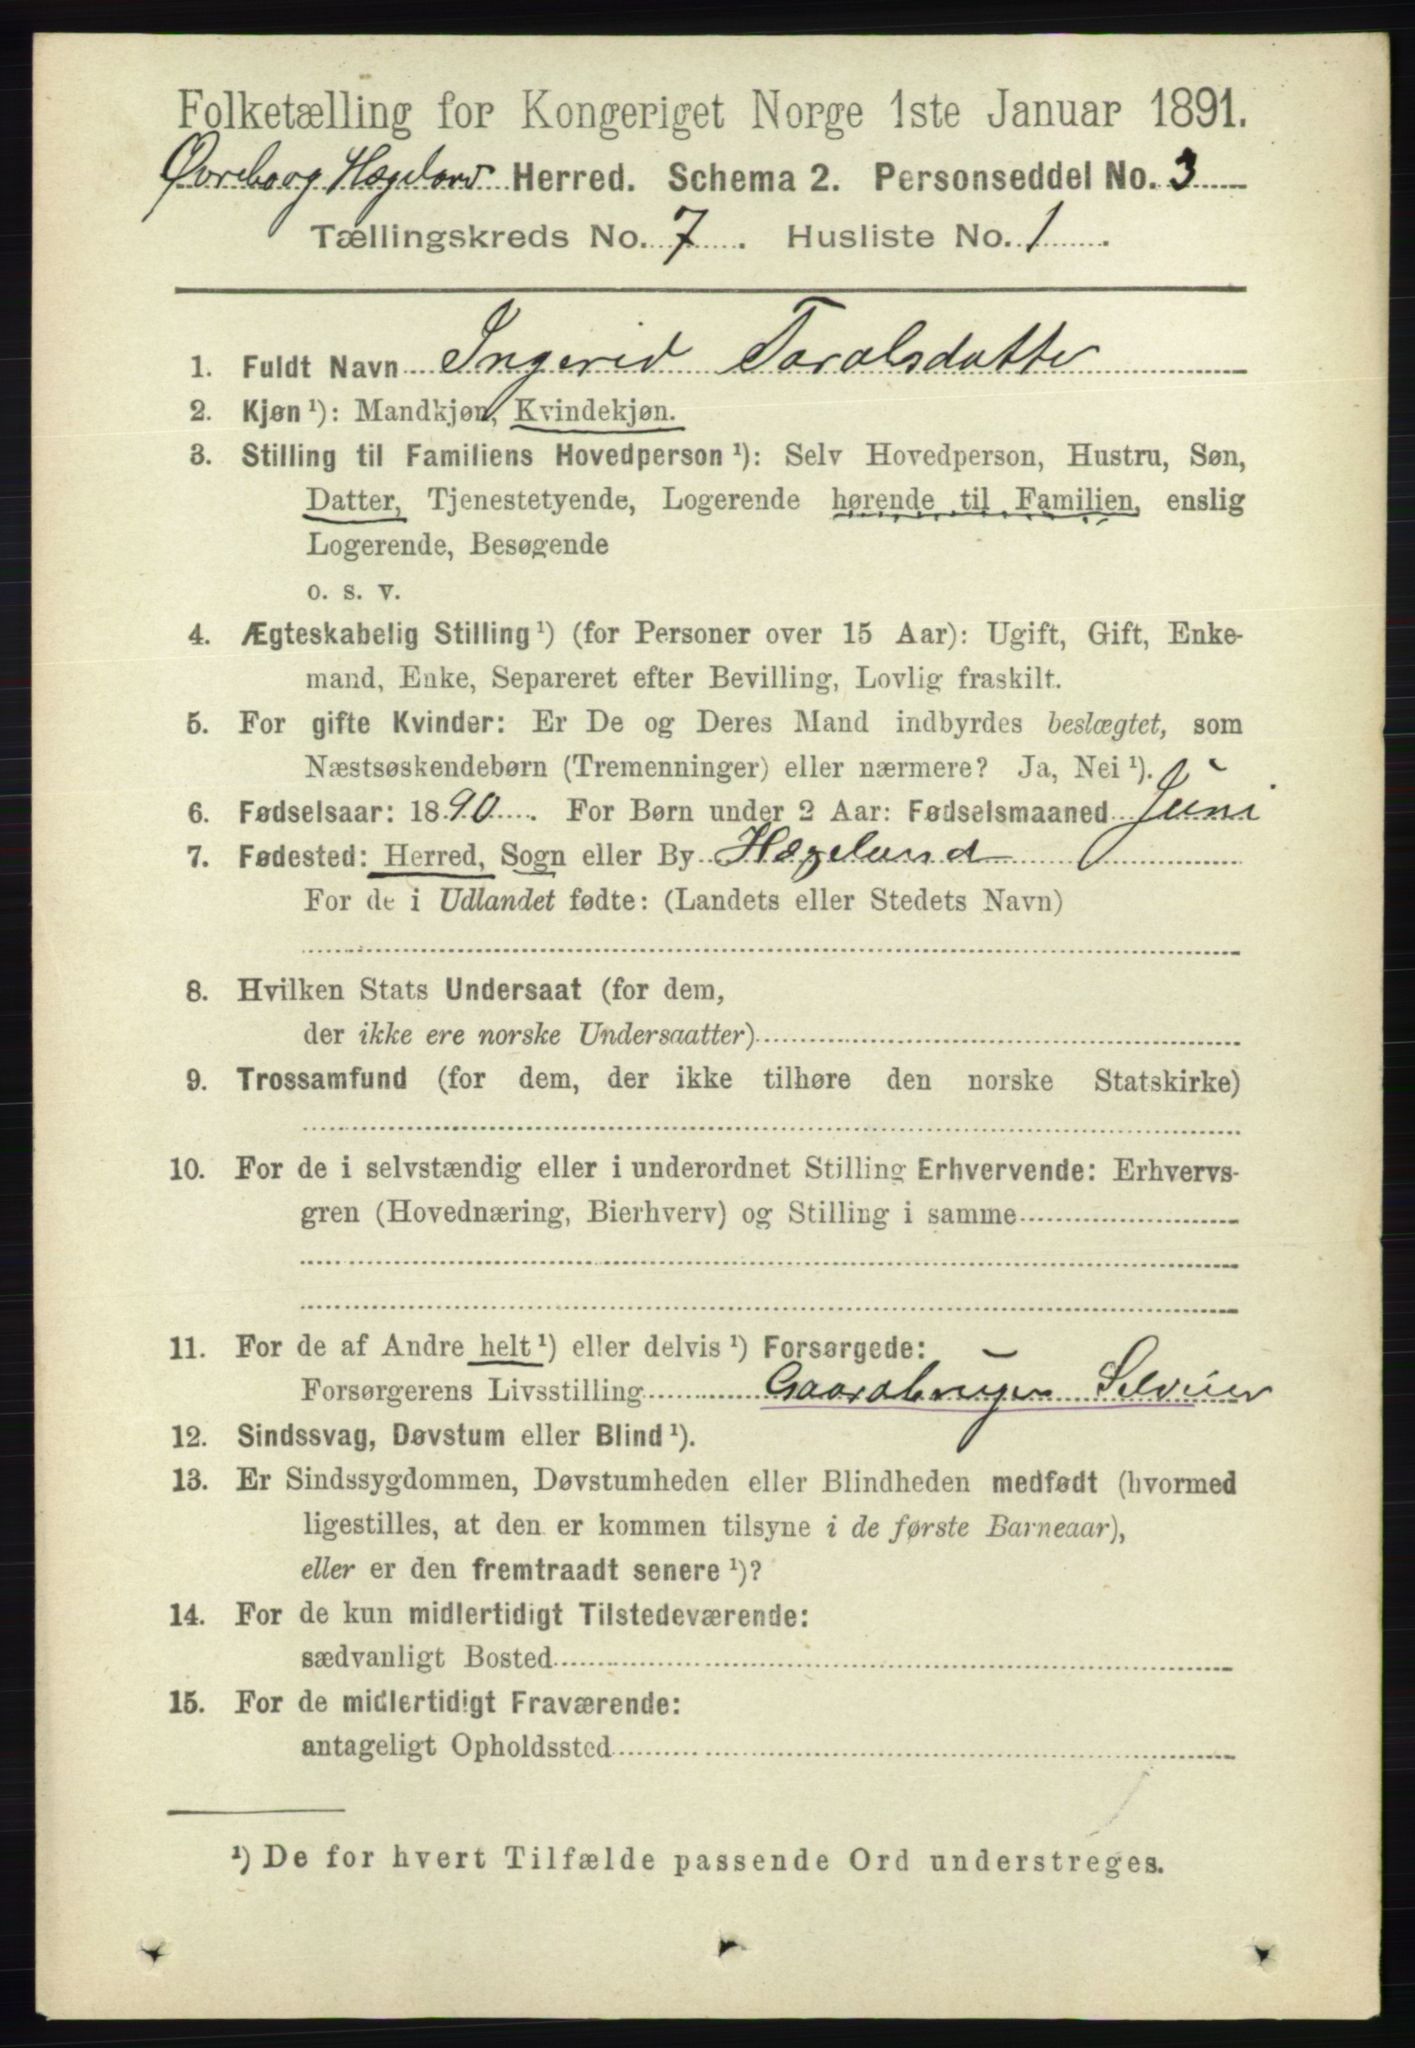 Folketælling for Kongeriget Norge 1ste Januar 1891.
Øvrebø og Hægeland Herred. Schema 2. Personseddel No. 3
Tællingskreds No. 7. Husliste No. 1.
1. Fuldt Navn Ingerid Taralsdatter
2. Kjøn ¹): Mandkjøn, Kvindekjøn.
3. Stilling til Familiens Hovedperson ¹): Selv Hovedperson, Hustru, Søn,
Datter, Tjenestetyende, Logerende hørende til Familien, enslig
Logerende, Besøgende
o. s. v.
4. Ægteskabelig Stilling ¹) (for Personer over 15 Aar): Ugift, Gift, Enke-
mand, Enke, Separeret efter Bevilling, Lovlig fraskilt.
5. For gifte Kvinder: Er De og Deres Mand indbyrdes beslægtet, som
Næstsøskendebørn (Tremenninger) eller nærmere? Ja, Nei ¹).
6. Fødselsaar: 1890. For Børn under 2 Aar: Fødselsmaaned Juni
7. Fødested: Herred, Sogn eller By Hægeland
For de i Udlandet fødte: (Landets eller Stedets Navn)
8. Hvilken Stats Undersaat (for dem,
der ikke ere norske Undersaatter)
9. Trossamfund (for dem, der ikke tilhøre den norske Statskirke)
10. For de i selvstændig eller i underordnet Stilling Erhvervende: Erhvervs-
gren (Hovednæring, Bierhverv) og Stilling i samme
11. For de af Andre helt ¹) eller delvis ¹) Forsørgede:
Forsørgerens Livsstilling Gaardbruger Selveier
12. Sindssvag, Døvstum eller Blind ¹).
13. Er Sindssygdommen, Døvstumheden eller Blindheden medfødt (hvormed
ligestilles, at den er kommen tilsyne i de første Barneaar),
eller er den fremtraadt senere ¹)?
14. For de kun midlertidigt Tilstedeværende:
sædvanligt Bosted
15. For de midlertidigt Fraværende:
antageligt Opholdssted
¹) De for hvert Tilfælde passende Ord understreges.